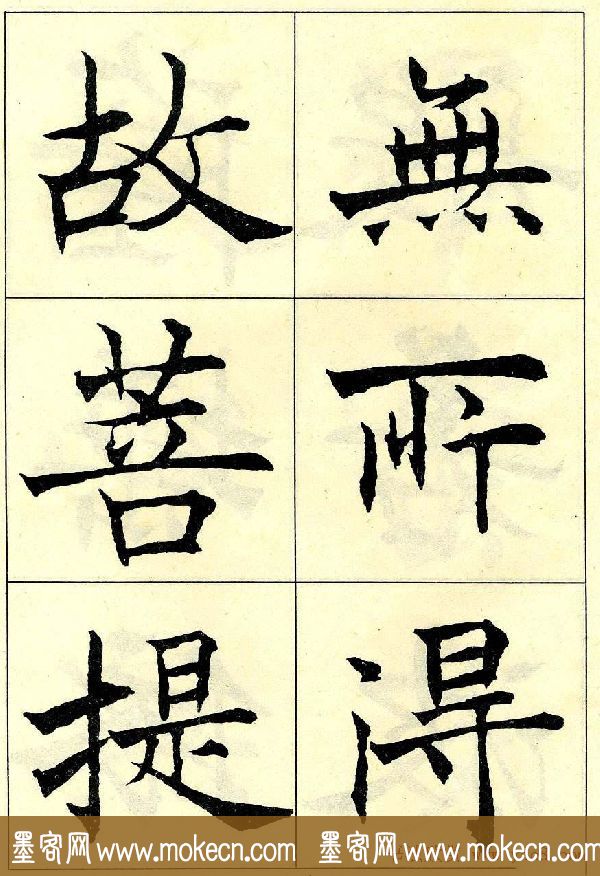 無所得
故菩提
墨客网 www.mokecn.com 墨客网 www.mokecn.com